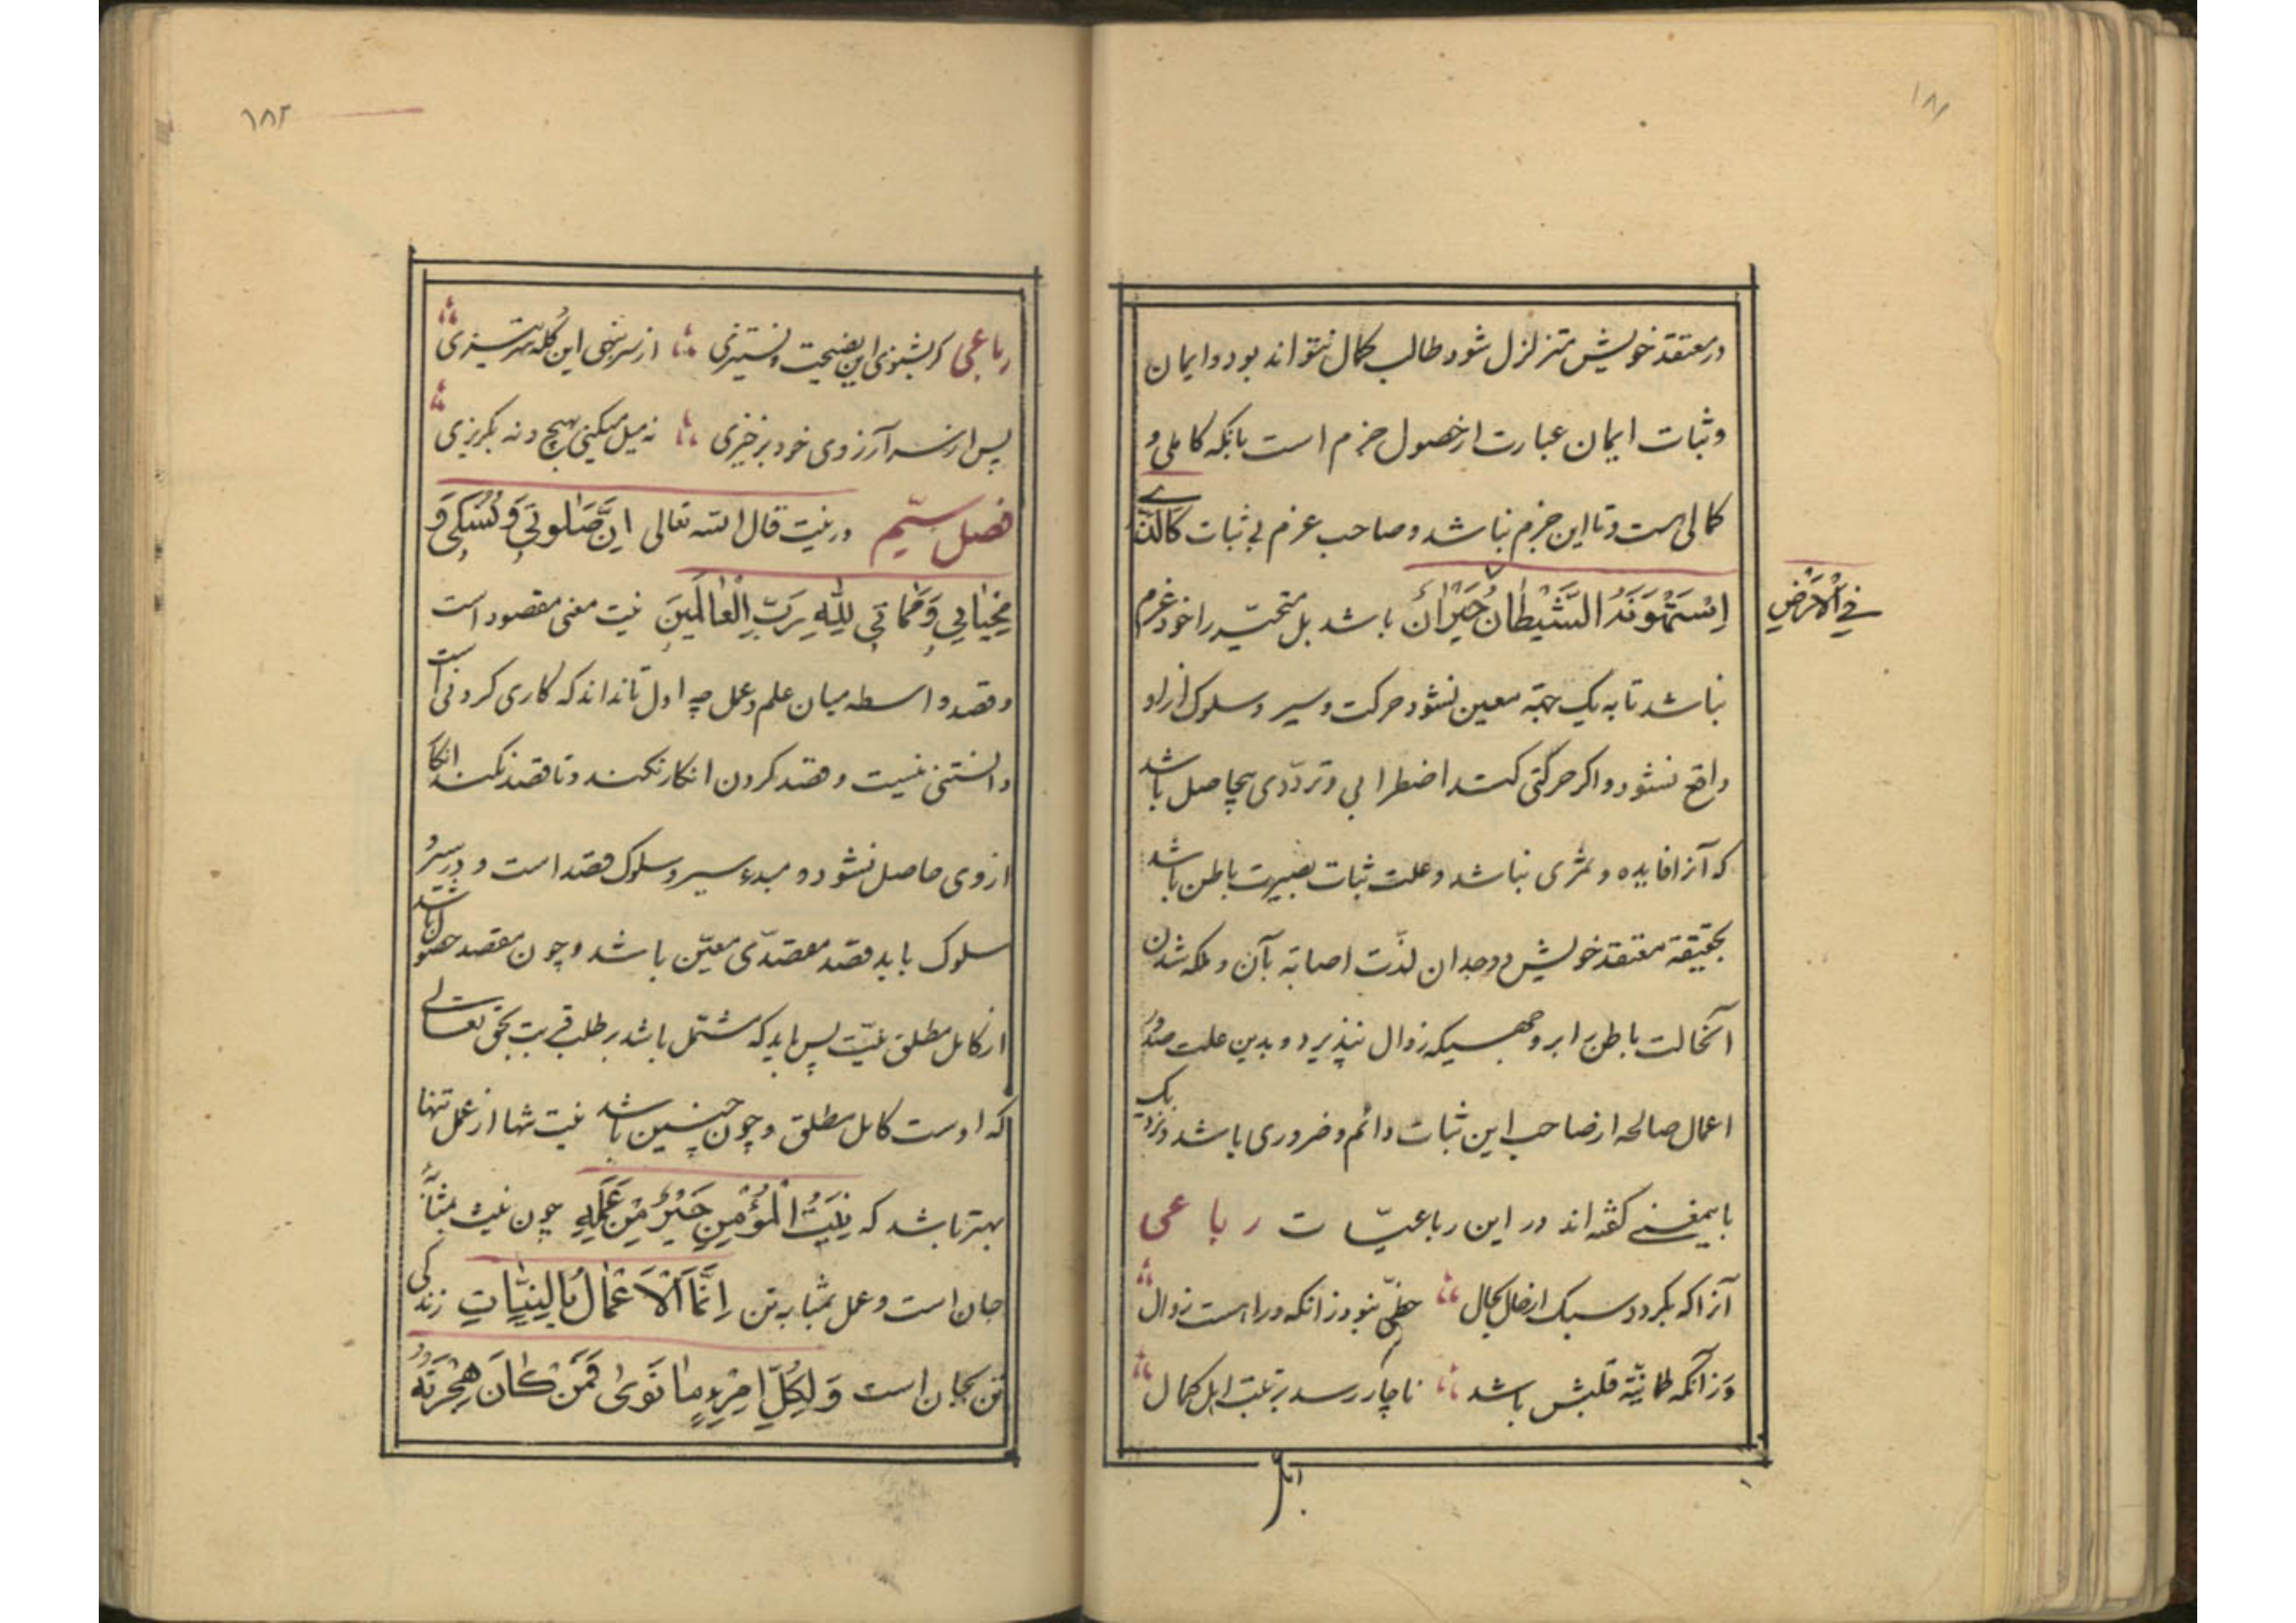 ۱۸۱
در معتقد خویش متزلزل شود طالب کمال نتواند بود و ایمان
و ثبات ایمان عبارت از حصول جزم است بانکه کاملی و
کمالی هست و تا این جزم نباشد و صاحب عزم بی ثبات کَالَّذی
اِسْتَهْوَتْهُ الشَّیْطانُ حَیْرانَ باشد بل متحیّر را خود عزم
فِی الْاَرْضِ
نباشد تا به یک جهة معین نشود حرکت و سیر و سلوک ازاو
واقع نشود و اکر حرکتی کند اضطرابی و تردّدی بیحاصل باشد
که آنرا فایده و ثمری نباشد و علت ثبات بصیرت باطن باشد
بحقیقة معتقد خویش و وجدان لذّت اصابة بآن و ملکه شدن
آنحالت باطن را بر وجهیکه زوال نپذیرد و بدین علت صدور
اعمال صالحه از صاحب این ثبات دائم و ضروری باشد و نزدیک
باینمعنی کفته اند در این رباعیّات رباعی
آنرا که بکردد سبک از حال بحال حظّی نبود زانکه ورا هست زوال
وزآنکه طمانینة قلبش باشد ناچار رسد برتبت اهل کمال
رباعی
۱۸۲
رباعی کر بشنوی این نصیحت و نستیزی از سر بنهی این کله
پس از سر آرزوی خود برخیزی نه میل میکنی بهیچ و نه بکریزی
فصل سیّم در نیت قال الله تعالی اِنَّ صَلوتی وَ نُسُکی وَ
مَحْیایَ وَ مَماتی لِلّٰهِ رَبِّ الْعالَمینَ نیت معنی مقصود است
و قصد واسطه میان علم و عمل چه اول تا نداند که کاری کردنی است
دانستنی نیست و قصد کردن انکار نکند و تا قصد نکند انکا
از وی حاصل نشود و مبدء سیر و سلوک قصد است و در سیر و
سلوک باید قصد مقصدی معیّن باشد و چون مقصد حصول باشد
از کامل مطلق نیّت پس باید که مشتمل باشد بر طلب قربت بحق تعالی
که اوست کامل مطلق و چون چنین باشد نیت تنها از عمل تنها
بهتر باشد که نِیَّةُ الْمُؤْمِنِ خَیْرٌ مِنْ عَمَلِهِ چون نیت بمثابهٔ
جان است و عمل بمثابه تن اِنَّمَا الْاَعْمالُ بِالنِّیّاتِ زندکی
تن بجان است وَ لِکُلِّ امْرِءٍ ما نَوی فَمَنْ کانَ هِجْرَتُهُ